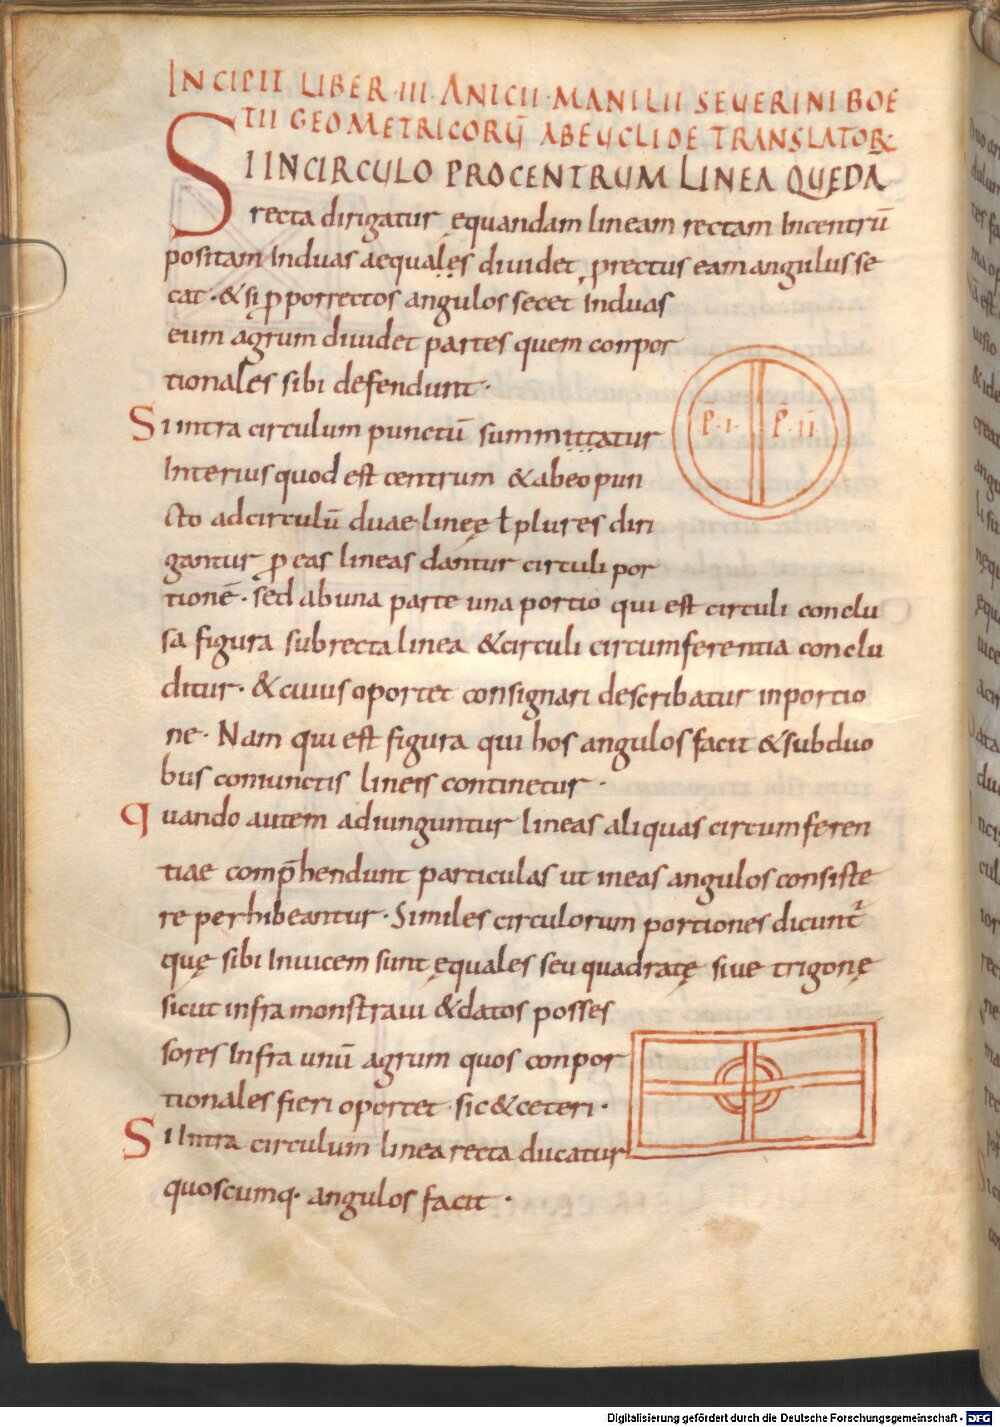 INCIPII LIBER·III·ANICII·MANILII SEUERINI BOE
TII GEOMETRICORŪ ABEUCLIDE TRANSLATOR
SI INCIRCULO PROCENTRUM LINEA QUEDĀ
recta dirigatur ęquandam lineam rectam Incentrū
positam Induas aequalęs diuidet prectus eam angulus se
cat·&si ꝑ porrectos angulos secet Induas
eum agrum diuidet partes quem conpor
tionales sibi defendunt·
P·I· P·II·
Si intra circulum punctū summittatur
Interius quod est centrum &abeo pun
cto adcirculū duae lineę ł plures diri
gantur ꝑ eas lineas dantur circuli por
tionē· sed abuna parte una portio qui est circuli conclu
sa figura subrecta linea &circuli circumferentia conclu
ditur·&cuius oportet consignari describatur inportio
ne· Nam qui est figura qui hos angulos facit &subduo
bus coniunctis lineis continetur·
quando autem adiunguntur lineas aliquas circumferen
tiae comp̄hendunt particulas ut ineas angulos consiste
re perhibeantur· Similes circulorum portiones dicunt᷑
quę sibi Inuicem sunt ęquales seu quadratę siue trigonę
sicut infra monstraui &datos posses
sores Infra unū agrum quos conpor
tionales fieri oportet sic&ceteri·
Si Intra circulum linea recta ducatur
quoscumq· angulos facit·
Digitalisierung gefördert durch die Deutsche Forschungsgemeinschaft - DFG